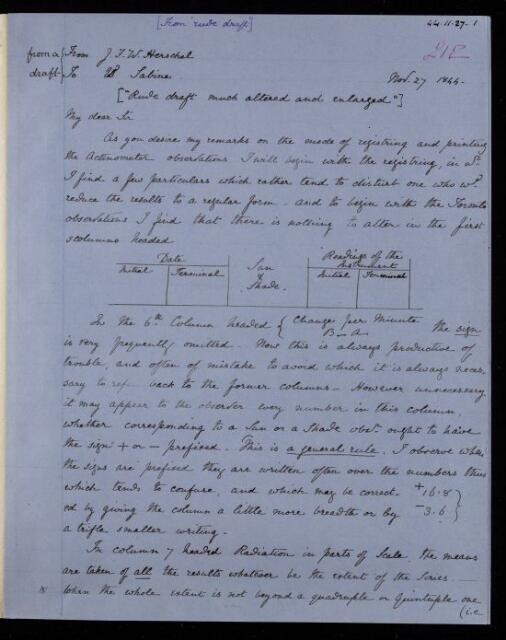 [from "rude draft"]
44.11.27.1
from a draft
From J. F. W. Herschel
To Sabine
Nov. 27 1844
["Rude draft much altered and enlarged"]
My dear Sir
As you desire my remarks on the mode of registring and printing
the Actinometer observations I will begin with the registring, in wh.
I find a few particulars which rather tend to disturb one who wd.
reduce the results to a regular form – and to begin with the Toronto
observations I find that there is nothing to alter in the first
5 columns headed
Date
Initial Terminal
Sun & Shade.
Readings of the Instrument
Initial Terminal
In the 6th Column headed { Change per Minute B – A the sign
is very frequently omitted – Now this is always productive of
trouble, and often of mistake to avoid which it is always neces-
sary to refr. back to the former columns – However unnecessary
it may appear to the observer every number in this column,
whether corresponding to a Sun or a Shade obsn. ought to have
the sign + or – prefixed. This is a general rule. I observe when
the signs are prefixed they are written often over the numbers thus
which tends to confuse, and which may be correct- +16.8 }
ed by giving the column a little more breadth or by –3.6 }
a trifle smaller writing.
In column 7 headed Radiation in parts of Scale, the means
are taken of all the results whatever be the extent of the Series –
When the whole extent is not beyond a quadruple or quintuple one
(i.e